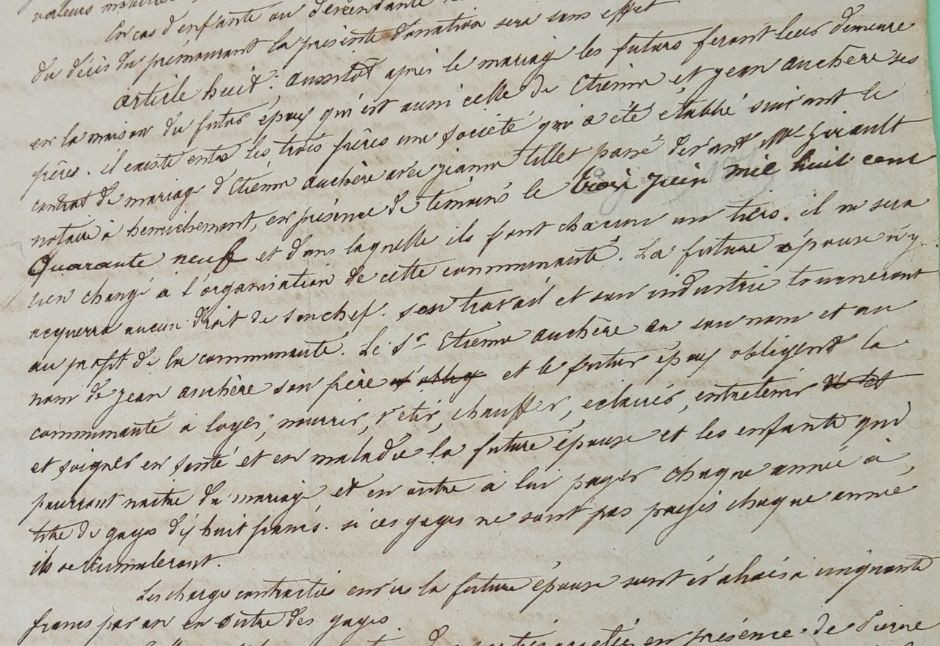 En cas d'enfants ou descendants
du décès du prémourant la présente donation sera sans effet
article huit; aussitôt après le mariage les futurs feront leur demeure
en la maison du futur époux qui est aussi celle de Etienne et jean auchère ses
frères. il existe entre les trois frères une société qui a été établie suivant le
contrat de mariage d'Etienne auchère avec jeanne tillet passé devant Me Girault
notaire à henrichemont, en présence de témoins le trois juin mil huit cent
quarante neuf et dans laquelle ils sont chacun un tiers. il ne sera
rien changé a l'organisation de cette communauté. La future épouse n'y
acquerra aucun droit de son chef. son travail et son industrie tourneront
au profit de la communauté. Le Sr. Etienne auchère en son nom et au
nom de jean auchère son frère et oblig et le futur époux obligent la
communauté à loger, nourrir, vetir, chauffer, eclairer, entretenir
et soigner en santé et en maladie la future épouse et les enfants qui
pourront naitre du mariage et en outre à lui payer chaque année à
titre de gages dix huit francs. si ces gages ne sont pas payés chaque année
ils accumuleront.
Les charges contractées envers la future épouse sont évaluées a cinquante
francs par an en outre des gages.
en présence de Pierre